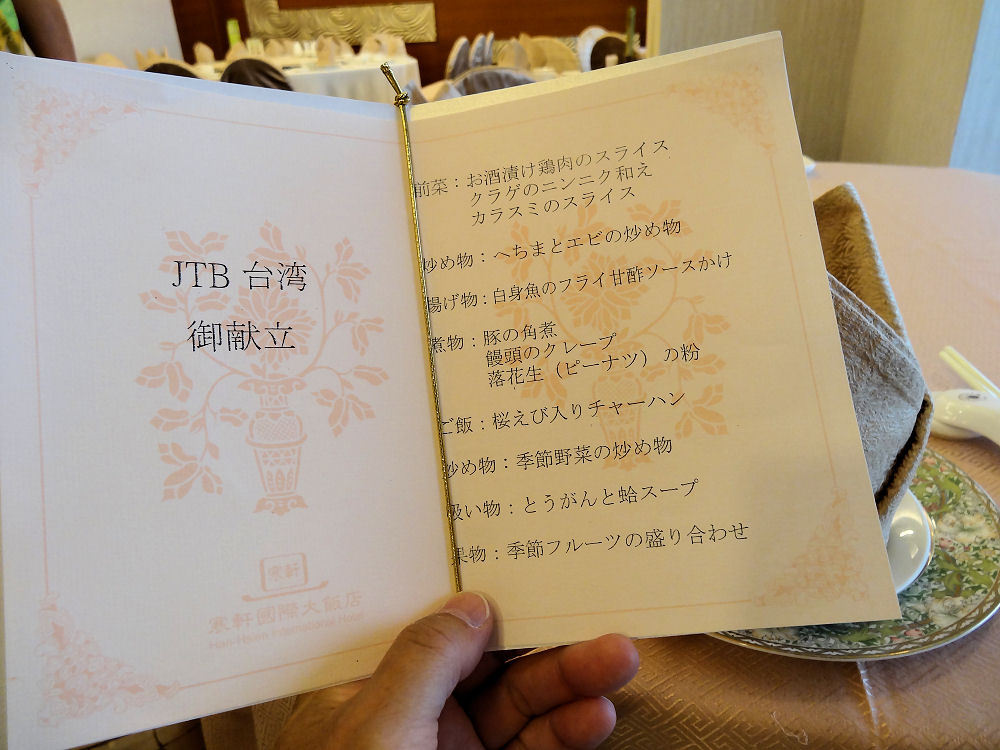 JTB 台湾
御献立
寒軒
寒軒國際大飯店
Han-Hsien International Hotel
前菜：お酒漬け鶏肉のスライス
クラゲのニンニク和え
カラスミのスライス
炒め物：へちまとエビの炒め物
揚げ物：白身魚のフライ甘酢ソースかけ
煮物：豚の角煮
饅頭のクレープ
落花生（ピーナツ）の粉
ご飯：桜えび入りチャーハン
炒め物：季節野菜の炒め物
吸い物：とうがんと蛤スープ
果物：季節フルーツの盛り合わせ